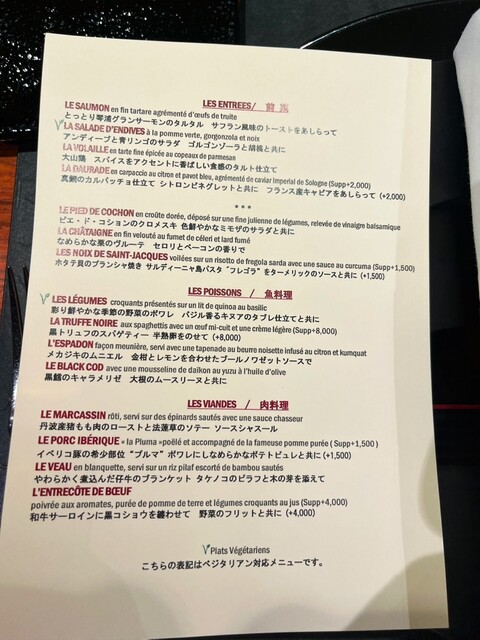 LES ENTREES/ 前菜
LE SAUMON en fin tartare agrémenté d'œufs de truite
とっとり琴浦グランサーモンのタルタル サフラン風味のトーストをあしらって
V LA SALADE D'ENDIVES à la pomme verte, gorgonzola et noix
アンディーブと青リンゴのサラダ ゴルゴンゾーラと胡桃と共に
LA VOLAILLE en tarte fine épicée au copeaux de parmesan
大山鶏 スパイスをアクセントに香ばしい食感のタルト仕立て
LA DAURADE en carpaccio au citron et pavot bleu, agrémenté de caviar Imperial de Sologne (Supp+2,000)
真鯛のカルパッチョ仕立て シトロンビネグレットと共に フランス産キャビアをあしらって (+2,000)
***
LE PIED DE COCHON en croûte dorée, déposé sur une fine julienne de légumes, relevée de vinaigre balsamique
ピエ・ド・コションのクロメスキ 色鮮やかなミモザのサラダと共に
LA CHÂTAIGNE en fin velouté au fumet de céleri et lard fumé
なめらかな栗のヴルーテ セロリとベーコンの香りで
LES NOIX DE SAINT-JACQUES voilées sur un risotto de fregola sarda avec une sauce au curcuma (Supp+1,500)
ホタテ貝のプランシャ焼き サルディーニャ島パスタ "フレゴラ"をターメリックのソースと共に (+1,500)
LES POISSONS / 魚料理
V LES LÉGUMES croquants présentés sur un lit de quinoa au basilic
彩り鮮やかな季節の野菜のポワレ バジル香るキヌアのタブレ仕立てと共に
LA TRUFFE NOIRE aux spaghettis avec un œuf mi-cuit et une crème légère (Supp+8,000)
黒トリュフのスパゲティー 半熟卵をのせて (+8,000)
L'ESPADON façon meunière, servi avec une tapenade au beurre noisette infusé au citron et kumquat
メカジキのムニエル 金柑とレモンを合わせたブールノワゼットソースで
LE BLACK COD avec une mousseline de daïkon au yuzu à l'huile d'olive
黒鱈のキャラメリゼ 大根のムースリーヌと共に
LES VIANDES / 肉料理
LE MARCASSIN rôti, servi sur des épinards sautés avec une sauce chasseur
丹波産猪もも肉のローストと法蓮草のソテー ソースシャスール
LE PORC IBÉRIQUE « la Pluma »poêlé et accompagné de la fameuse pomme purée ( Supp+1,500 )
イベリコ豚の希少部位"プルマ" ポワレにしなめらかなポテトピュレと共に (+1,500)
LE VEAU en blanquette, servi sur un riz pilaf escorté de bambou sautés
やわらかく煮込んだ仔牛のブランケット タケノコのピラフと木の芽を添えて
L'ENTRECÔTE DE BŒUF
poivrée aux aromates, purée de pomme de terre et légumes croquants au jus (Supp+4,000)
和牛サーロインに黒コショウを纏わせて 野菜のフリットと共に (+4,000)
V Plats Végétariens
こちらの表記はベジタリアン対応メニューです。